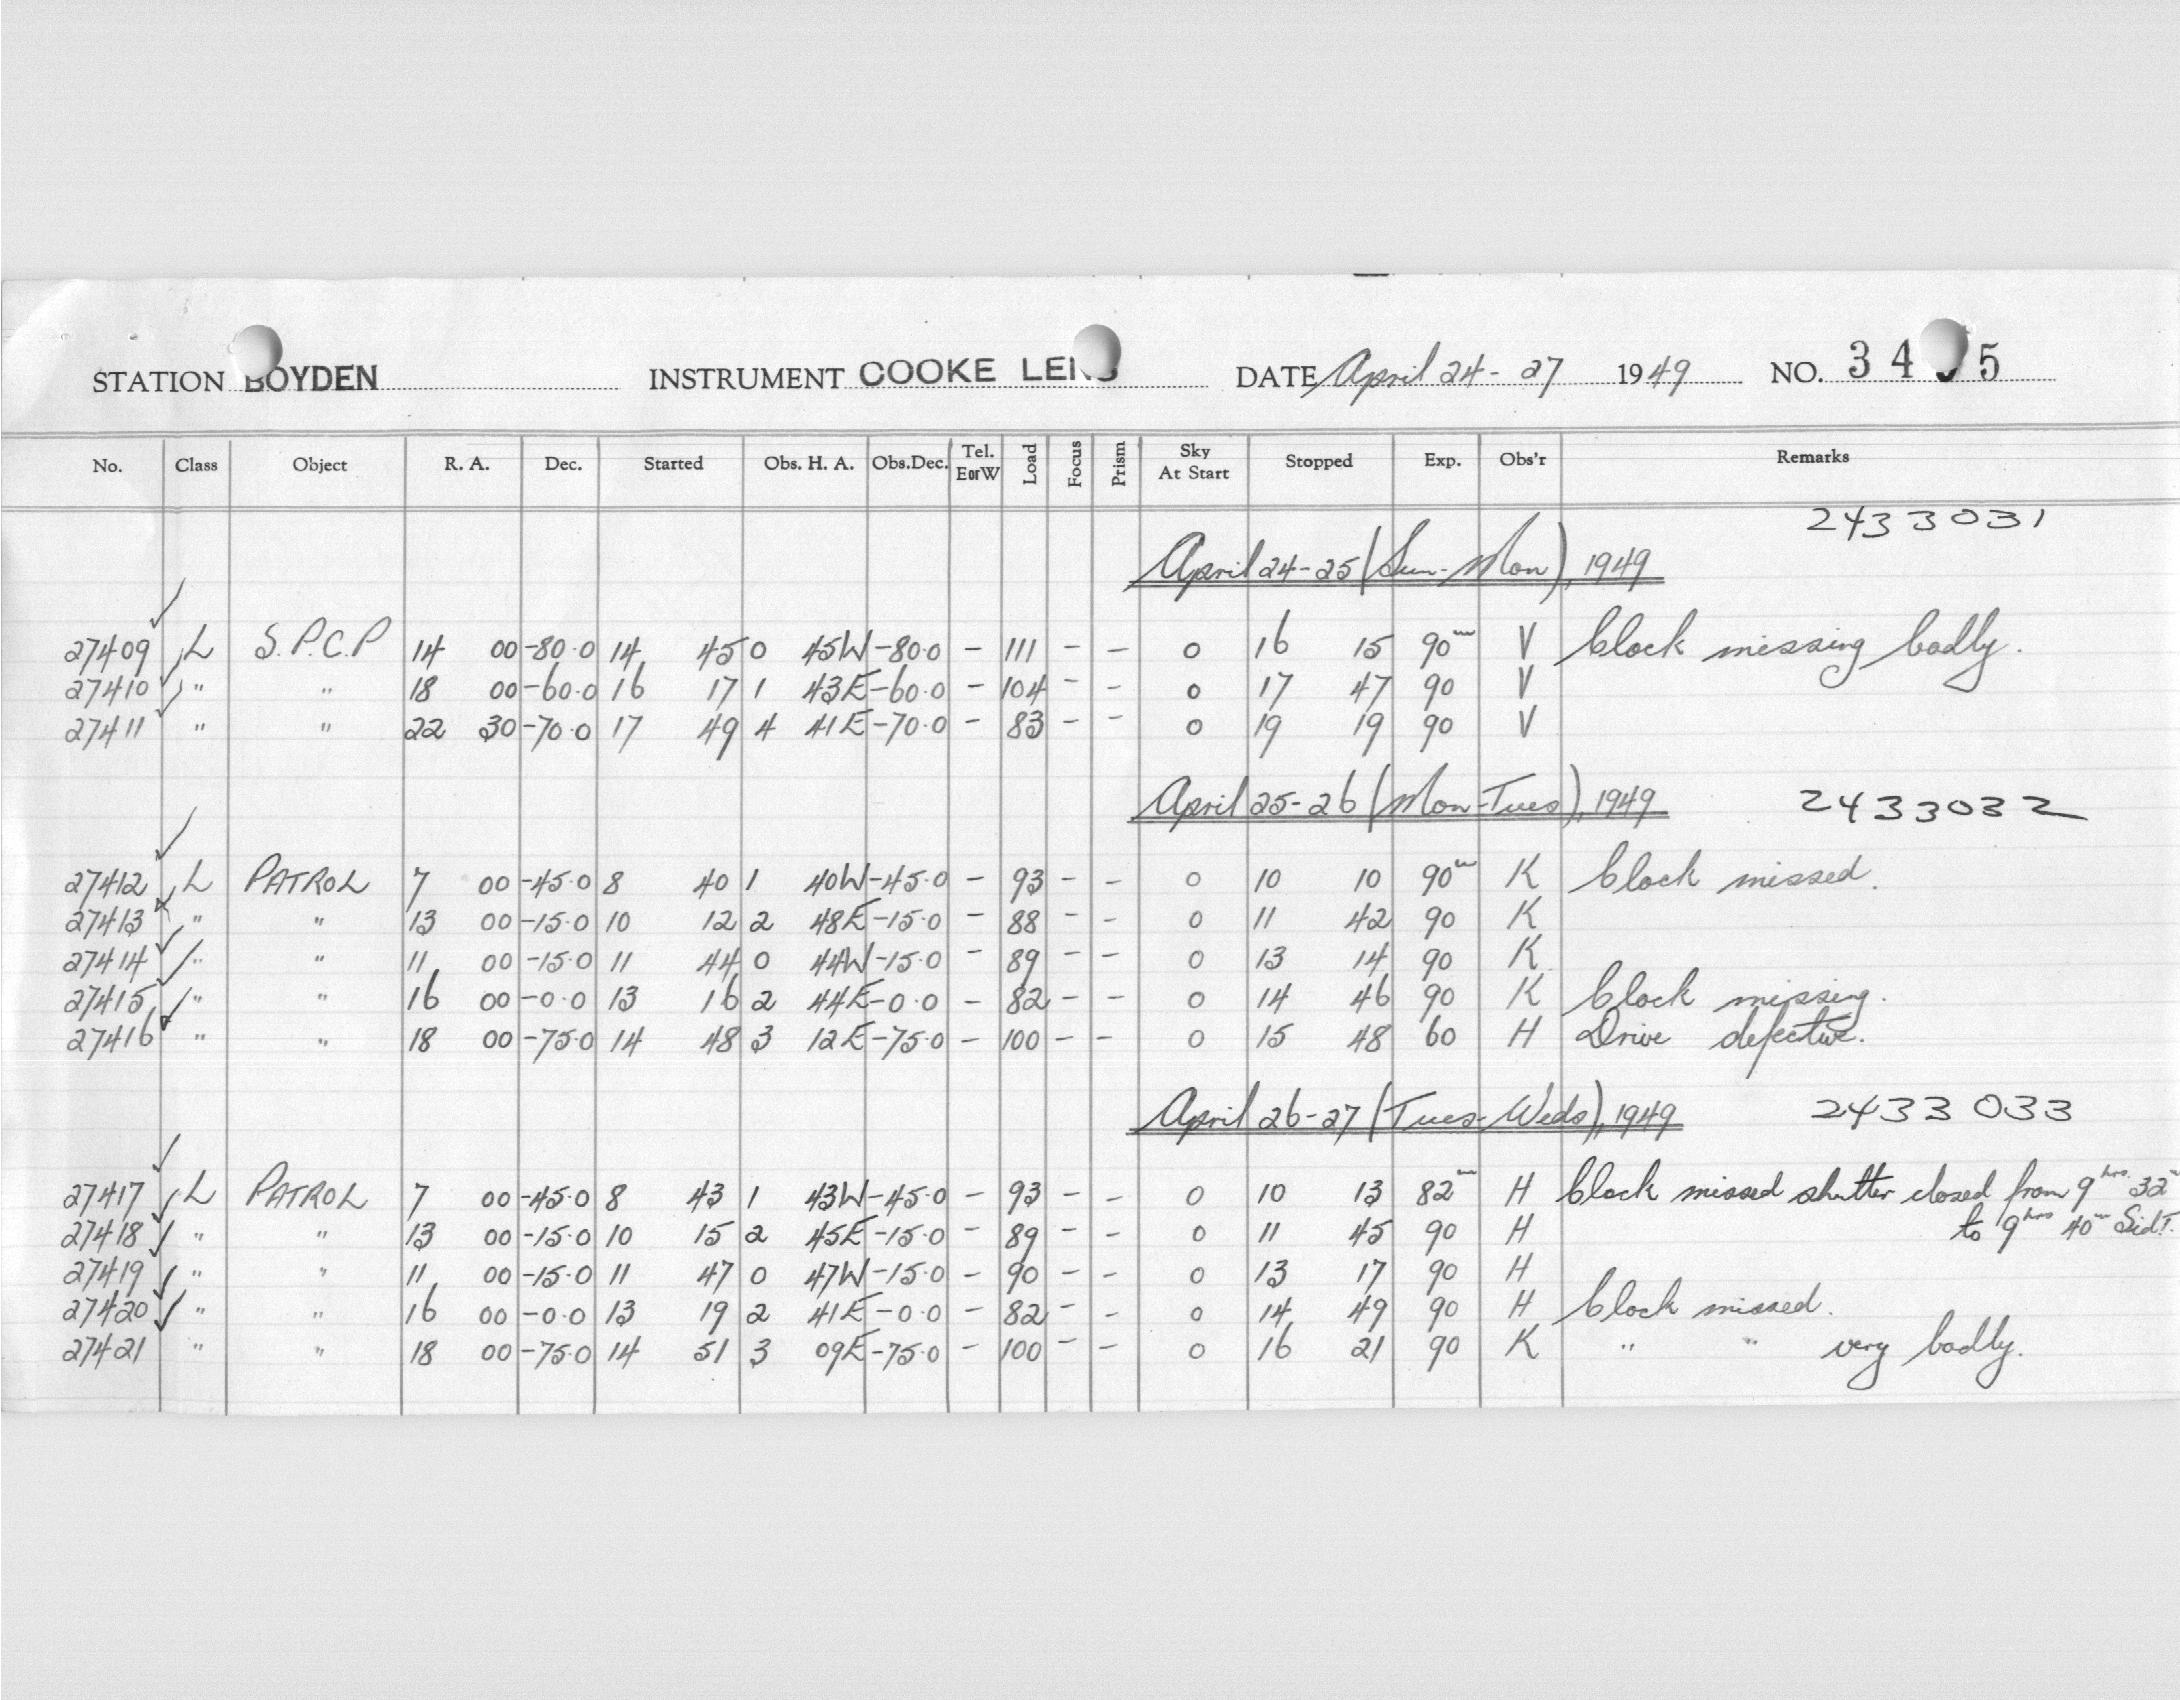 STATION BOYDEN INSTRUMENT COOKE LENS DATE April 24-27 1949 NO.
No. Class Object R. A. Dec. Started Obs. H. A. Obs.Dec. Tel. EorW Load Focus Prism Sky At Start Stopped Exp. Obs'r Remarks
2433031
April 24-25 (Sun-Mon), 1949
27409 L S.P.C.P 14 00 -80.0 14 45 0 45W -80.0 - 111 - - 0 16 15 90m V Clock missing badly.
27410 " " 18 00 -60.0 16 17 1 43E -60.0 - 104 - - 0 17 47 90 V
27411 " " 22 30 -70.0 17 49 4 41E -70.0 - 83 - - 0 19 19 90 V
April 25-26 (Mon-Tues), 1949 2433032
27412 L PATROL 7 00 -45.0 8 40 1 40W -45.0 - 93 - - 0 10 10 90m K Clock missed.
27413 " " 13 00 -15.0 10 12 2 48E -15.0 - 88 - - 0 11 42 90 K
27414 " " 11 00 -15.0 11 44 0 44W -15.0 - 89 - - 0 13 14 90 K
27415 " " 16 00 -0.0 13 16 2 44E -0.0 - 82 - - 0 14 46 90 K Clock missing.
27416 " " 18 00 -75.0 14 48 3 12E -75.0 - 100 - - 0 15 48 60 H Drive defective.
April 26-27 (Tues-Weds), 1949 2433033
27417 L PATROL 7 00 -45.0 8 43 1 43W -45.0 - 93 - - 0 10 13 82m H Clock missed shutter closed from 9hrs. 32m
to 9hrs 40m Sid.T.
27418 " " 13 00 -15.0 10 15 2 45E -15.0 - 89 - - 0 11 45 90 H
27419 " " 11 00 -15.0 11 47 0 47W -15.0 - 90 - - 0 13 17 90 H
27420 " " 16 00 -0.0 13 19 2 41E -0.0 - 82 - - 0 14 49 90 H Clock missed.
27421 " " 18 00 -75.0 14 51 3 09E -75.0 - 100 - - 0 16 21 90 K " " very badly.